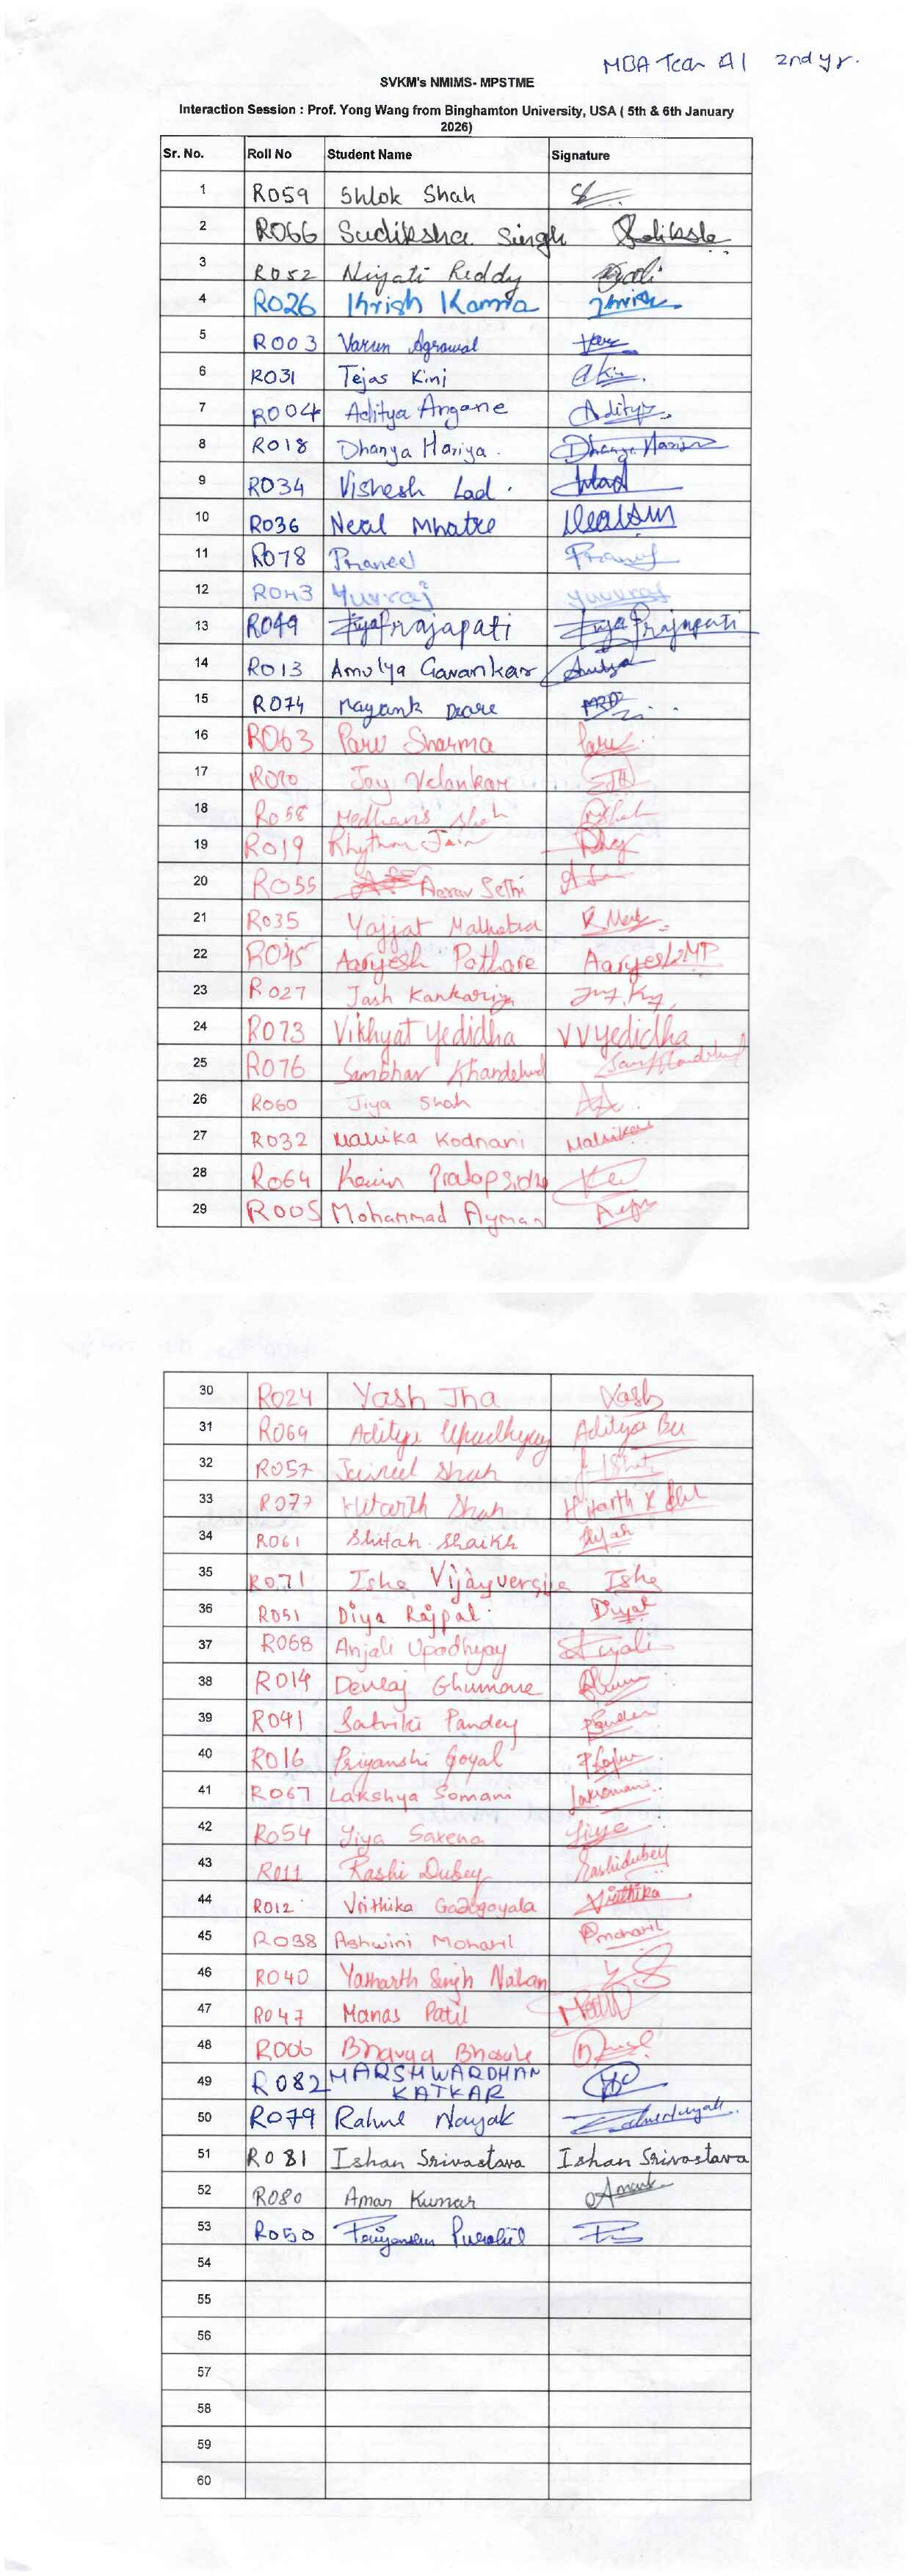 MBA Tech AI 2nd yr.
SVKM's NMIMS- MPSTME
Interaction Session : Prof. Yong Wang from Binghamton University, USA ( 5th & 6th January
2026)
Sr. No. Roll No Student Name Signature
1 R059 Shlok Shah
2 R066 Sudiksha Singh
3 R052 Niyati Reddy
4 R026 Khrish Kamra
5 R003 Varun Agrawal
6 R031 Tejas Kini
7 R004 Aditya Angane Aditya
8 R018 Dhanya Hariya. Dhanya Hariya
9 R034 Vishesh Lad.
10 R036 Neal Mhatre
11 R078 Praneel
12 R043 Yuvraj Yuvraj
13 R049 Prajapati Prajapati
14 R013 Amulya Gavankar
15 R074 Mayank
16 R063 Parv Sharma Parv
17 Jay Velankar
18 R058 Shah
19 R019 Rhythm Jain
20 R055 Aarav Sethi
21 R035 Malhotra
22 R045 Aaryesh Pathare AaryeshMP
23 R027 Jash Kankariya
24 R073 Vikhyat Yedidha VVyedidha
25 R076 Sambhav Khandelwal
26 R060 Jiya Shah
27 R032 Mallika Kodnani Mallika
28 R064 Kevin
29 R005 Mohammad Ayman
30 R024 Yash Jha Yash
31 R069 Aditya Upadhyay Aditya
32 R057 Jaineel Shah
33 R077 Hitarth Shah
34 R061 Shaikh
35 R071 Isha Vijayvergiya Isha
36 R051 Diya Rajpal. Diya
37 R068 Anjali Upadhyay Anjali
38 R014 Devraj Ghumare
39 R041 Satviki Pandey
40 R016 Priyanshi Goyal
41 R067 Lakshya Somani
42 R054 Jiya Saxena Jiya
43 R011 Rashi Dubey Rashidubey
44 R012 Vrithika Vrithika
45 R038 Ashwini Moharil Amoharil
46 R040 Yatharth Singh
47 R047 Manas Patil
48 R006 Bhavya Bhosale
49 R082 HARSHWARDHAN
KATKAR
50 R079 Rahul Nayak
51 R081 Ishan Srivastava Ishan Srivastava
52 R080 Aman Kumar
53 R050 Purohit
54
55
56
57
58
59
60